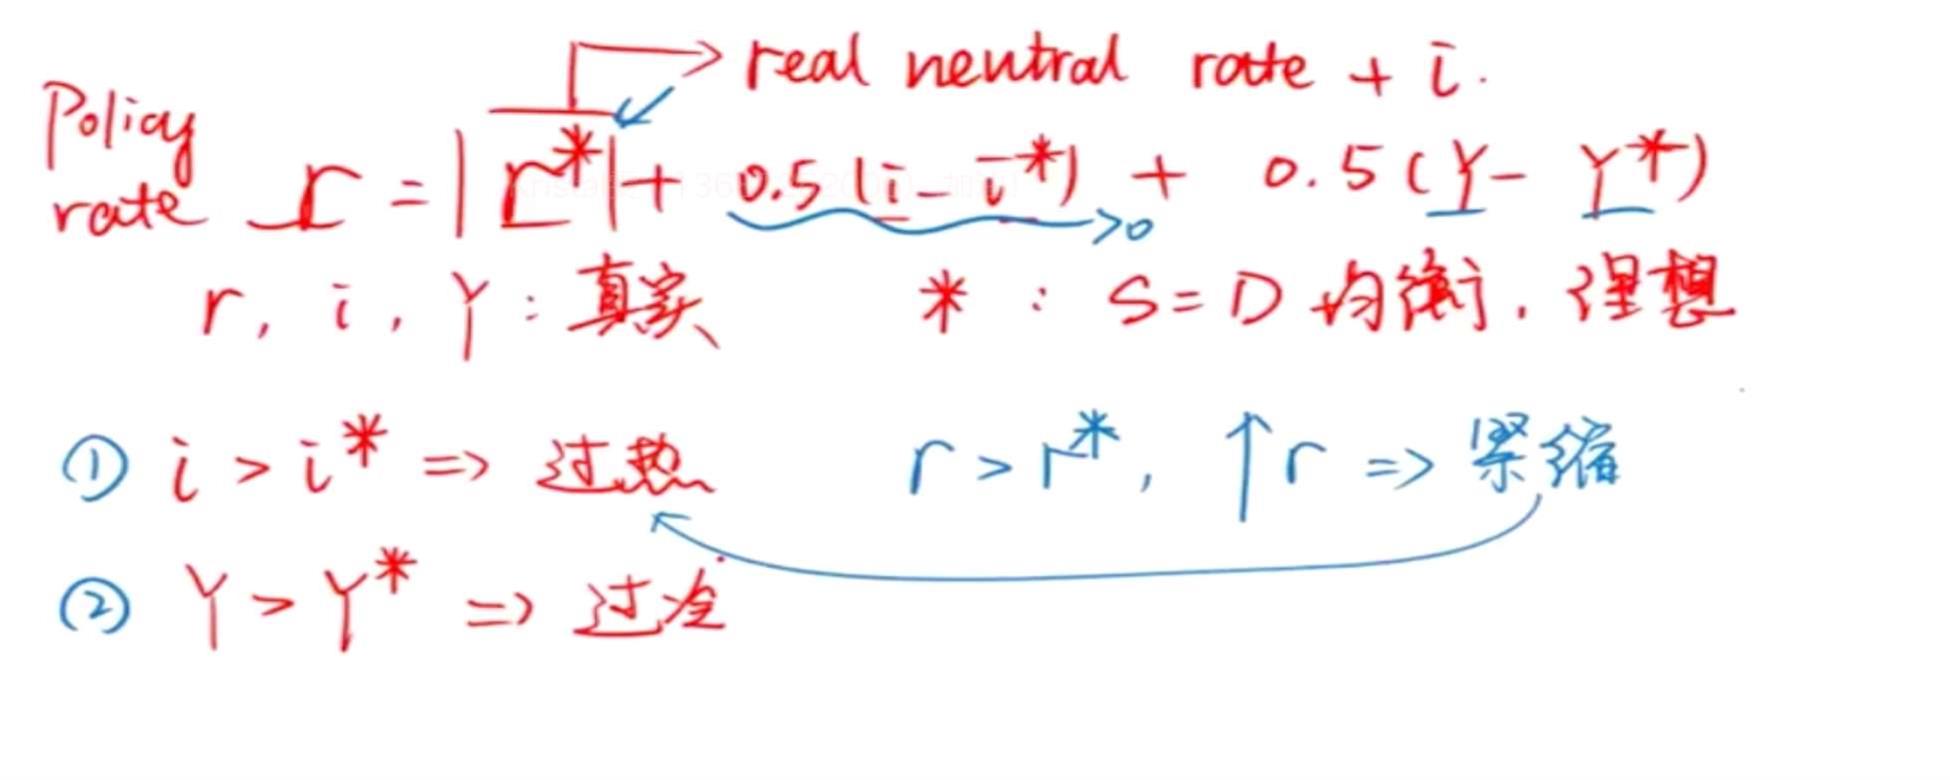 real neutral rate + i.
Policy rate r = | r* | + 0.5 (i - i*) + 0.5 (Y - Y*)
>0
r, i, Y : 真实 * : S = D 均衡, 理想
① i > i* => 过热 r > r*, ↑ r => 紧缩
② Y > Y* => 过冷